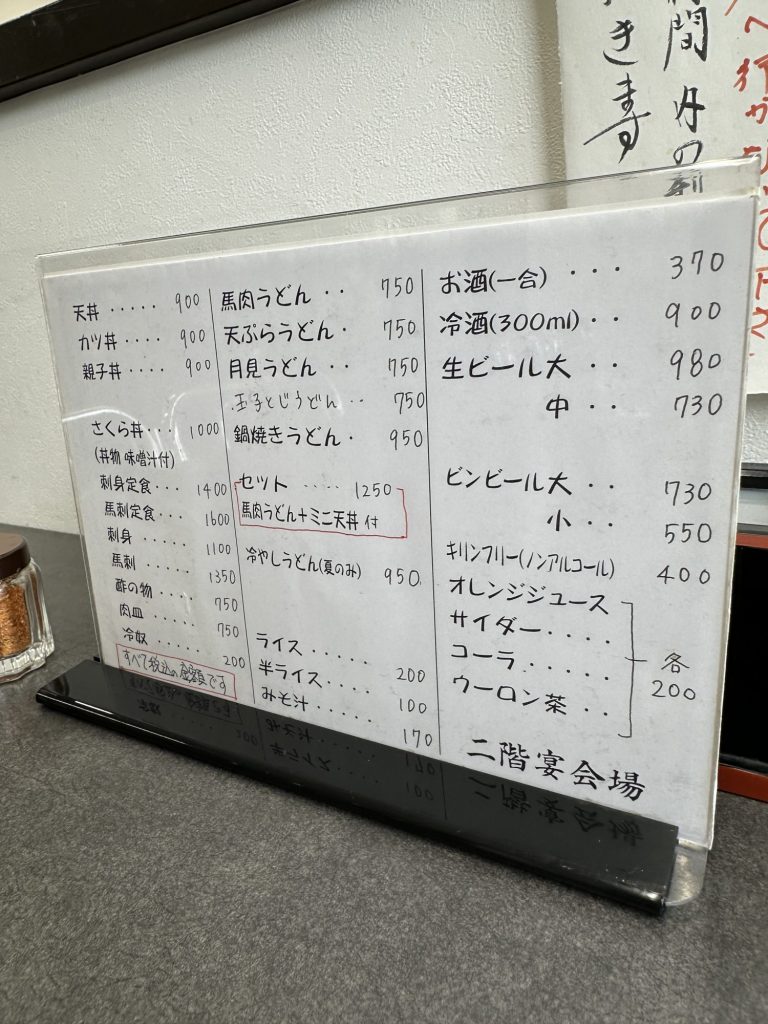 間 内の
きます
天丼 ‥‥‥ 900
カツ丼 ‥‥ 900
親子丼 ‥‥ 900
さくら丼‥‥ 1000
(丼物 味噌汁付)
刺身定食‥‥ 1400
馬刺定食‥‥ 1600
刺身 ‥‥‥ 1100
馬刺 ‥‥‥ 1350
酢の物 ‥‥ 750
肉皿 ‥‥‥ 750
冷奴 ‥‥‥ 200
すべて税込の金額です
馬肉うどん ‥ 750
天ぷらうどん・ 750
月見うどん ‥ 750
玉子とじうどん ‥ 750
鍋焼きうどん・ 950
セット ‥‥ 1250
馬肉うどん+ミニ天丼 付
冷やしうどん(夏のみ) 950
ライス ‥‥‥ 200
半ライス‥‥ 100
みそ汁 ‥‥‥ 170
お酒(一合) ・・・ 370
冷酒(300ml)・・ 900
生ビール大 ・・ 980
中 ・・ 730
ビンビール大 ・・ 730
小 ・・ 550
キリンフリー(ノンアルコール) 400
オレンジジュース
サイダー‥‥
コーラ ‥‥‥
ウーロン茶 ‥
各
200
二階宴会場